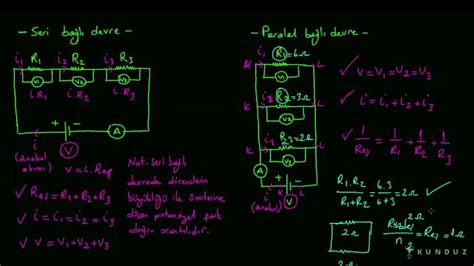 - Seri bağlı devre -
i₁ R₁ i₂ R₂ i₃ R₃
V₁ V₂ V₃
i.R₁ i.R₂ i.R₃
+ -
i V A
(anakol akımı)
V = i.Reş
✓ Reş = R₁ + R₂ + R₃
✓ i = i₁ = i₂ = i₃
✓ V = V₁ + V₂ + V₃
Not: Seri bağlı
devrede dirençlerin
büyüklüğü ile üzerlerine
düşen potansiyel fark
doğru orantılıdır.
- Paralel bağlı devre -
i₁ R₁ = 6Ω
K V₁ L
i₂ R₂ = 3Ω
K V₂ L
i₃ R₃ = 2Ω
K V₃ L
A + -
i K L
(anakol) V
✓ V = V₁ = V₂ = V₃
✓ i = i₁ + i₂ + i₃
✓ 1/Reş = 1/R₁ + 1/R₂ + 1/R₃
R₁.R₂/R₁+R₂ = 6.3/6+3 = 2Ω ✓
2Ω
2Ω
= Reş = 1Ω
n 2
KUNDUZ